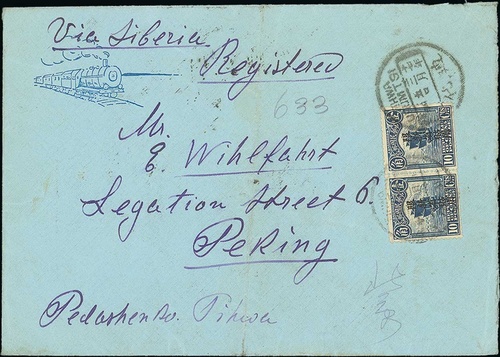 Via Siberia
Registered
633
Mr.
E. Wihlfahrt
Legation Street 6.
Peking
Pedashenko. Tihwa
TIHWA
10
10